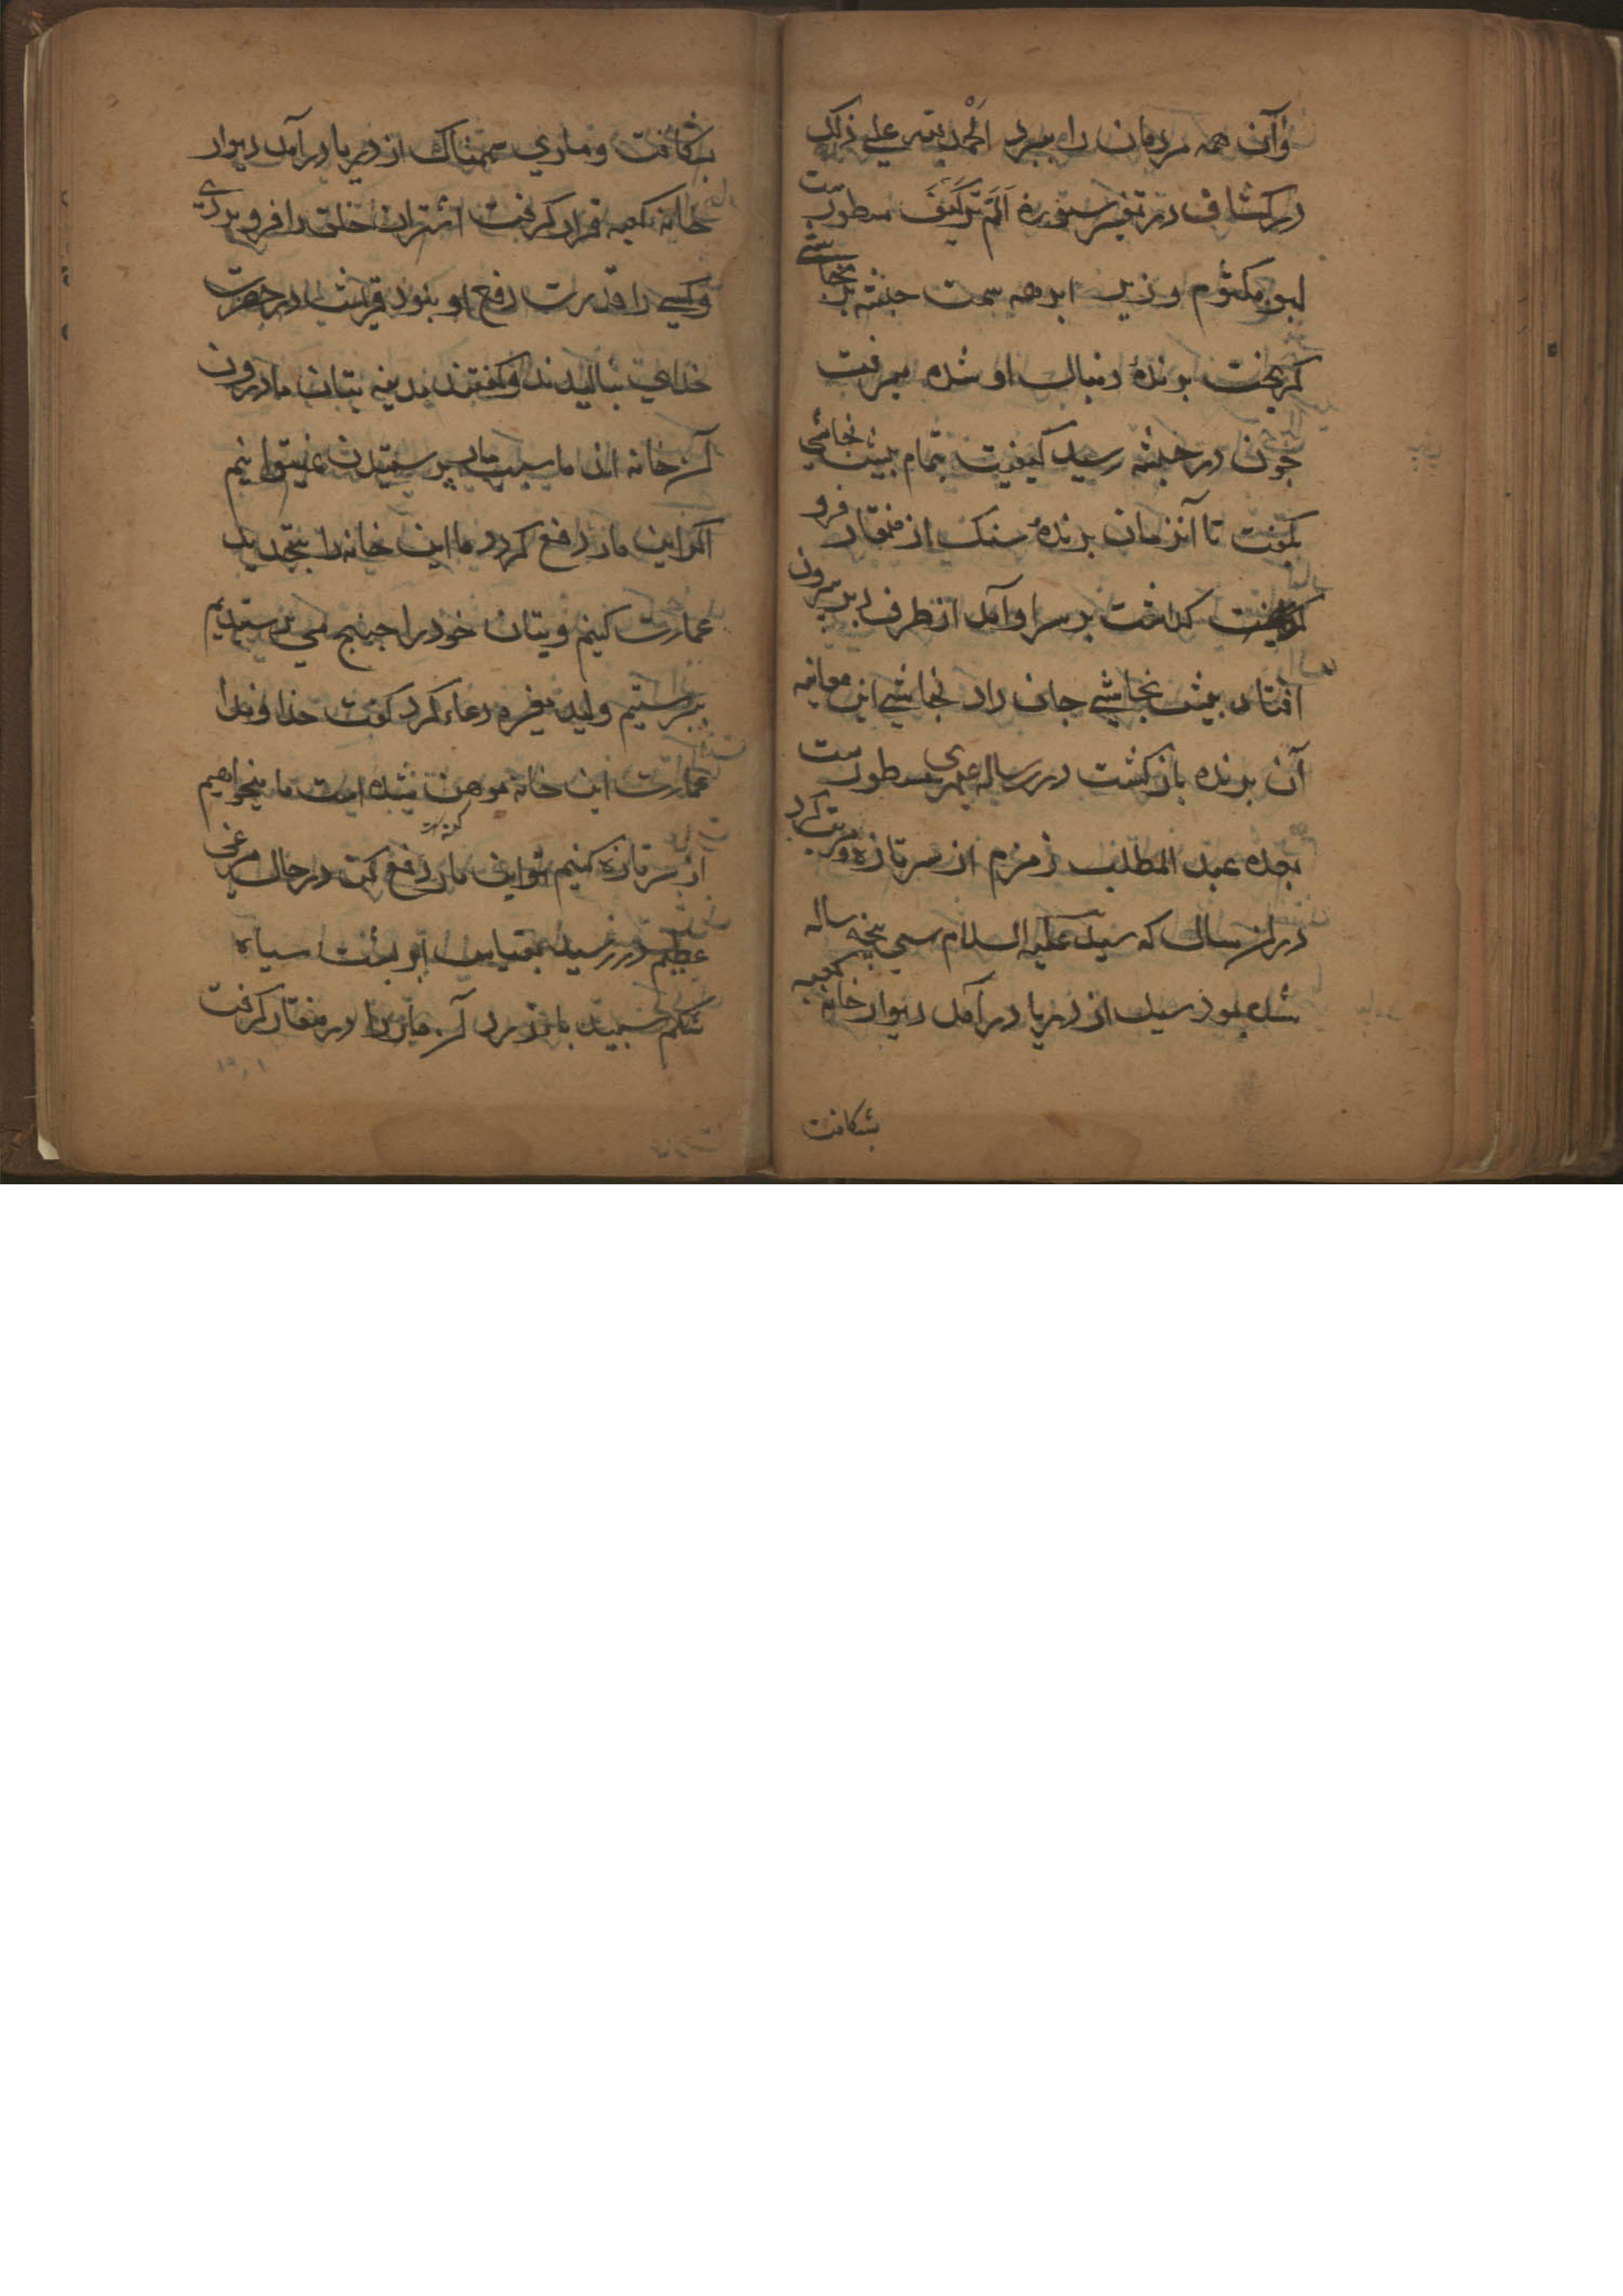 وآن همه مردمان را ببرد الحمد لله علی ذلک
در کشاف در تفسیر سورة اَلَم تَرَ کَیفَ مسطورست
ابو مکتوم وزیر ابرهه سمت حبشه بر نجاشی
کریخت برندهٔ دنبال او شده میرفت
جون در حبشه رسید کیفیت تمام بیش نجاشی
بکفت تا آنزمان برندهٔ سنک از منقار فرو
کذاشت بر سر او آمد از طرف دبر بیرون
افتاد بیش نجاشی جان داد نجاشی این معاینه
آن برنده باز کشت در رساله مسطورست
بعده عبد المطلب زمزم از سر تازه و مرتب کرد
دران سال که سید علیه السلام سی بنجساله
شده بود سیل از دریا درآمد دیوار خانه کعبه
بشکافت
بشکافت وماری سهمناک از دریا درآمد دیوار
خانه کعبه قرار کرفت اشتران خلق را فرو بردی
وکسی را قدرت دفع او نبود قریش در حضرت
خدای بنالیدند وکفتند بدینه بتان ما درون
آن خانه اند ما سبب مار برستیدن نمیتوانیم
اکر این مار دفع کردد ما این خانه را بتجدید
عمارت کنیم و بتان خود را جنانج می برستیدیم
ببرستیم ولید مغیره دعاء کرد کفت خداوندا
عمارت این خانه موهن شده است ما میخواهیم
کهنه
از سر تازه کنیم تو این مار دفع کن در حال مرغی
عظیم در رسید بمقیاس بشت سیاه
شکم سبید بال زرد آن مار را در منقار کرفت